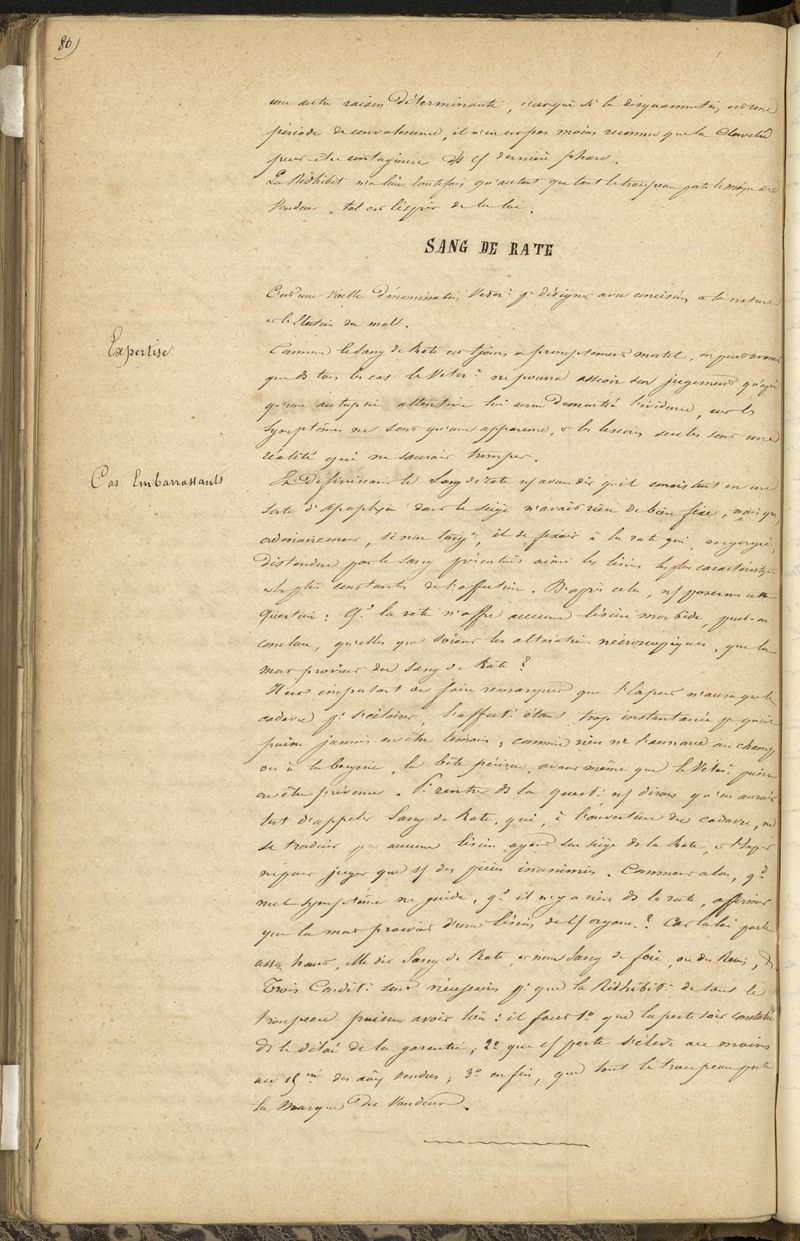 80)
une autre raison Déterminante, c'est que si la desquammation est une
période de convalescence, il n'en est pas moins reconnu que la Clavelée
peut être contagieuse ds cs dernière phase.
La Rédhibit n'a lieu toutefois qu'autant que tout le troupeau porte la marque du
Vendeur, tel est l'esprit de la loi.
SANG DE RATE
C'est une vieille Dénomination Vétér. pr désigner avec concision et la nature
et le du mal.
Expertise
Comme le Sang de Rate est tjours et promptement mortel, on peut avancer
que ds tous les cas le Vétér. ne pourra asseoir son jugement qu'après
qu'une autopsie attentive lui aura démontré l'évidence, car les
symptômes ne sont qu'une apparence, et les lésions seules sont une
réalité qui ne saurait tromper.
Cas Embarrassants
En Définissant le Sang de rate ns avons dit qu'il consistait en une
sorte d'apoplexie dont le siège n'avait rien de bien fixe, mais que
ordinairement, sinon tjrs, il se fixait à la rate qui, engorgée,
distendue par le sang présentait ainsi les lésions les plus caractéristiques
et les plus constantes de l'affection. D'après cela, ns poserons cette
question : Qd la rate n'offre aucune lésion morbide, peut-on
conclure, quelles que soient les altérations nécroscopiques, que la
mort provient du Sang de Rate ?
Il est important de faire remarquer que l'Expert n'aura que le
cadavre pr s'éclairer, l'affect. étant trop instantanée pr qu'il
puisse jamais en être témoin ; comme rien ne l'annonce au champ
ou à la bergerie, la bête périra, avant même que le Vétér. puisse
en être prévenu. Pr rentrer ds la quest. ns dirons qu'on aurait
tort d'appeler Sang de Rate, qui, à l'ouverture du cadavre, ne
se traduit par aucune lésion ayant son siège ds la Rate, et l'Expert
ne peut juger que sr des pièces inanimées. Comment alors, qd
nul symptôme ne guide, qd il n'y a rien ds la rate, affirmer
que la mort provient d'une lésion de cs organe ? Car la loi parle
assez haut, elle dit Sang de Rate, et non Sang de foie, ou des Reins,
Trois Condit. sont nécessaires pr que la Rédhibit. de tout le
troupeau puisse avoir lieu : il faut 1º que la perte soit constatée
ds le délai de la garantie ; 2º que cs perte s'élève au moins
au 15me des anx vendus ; 3º enfin, que tout le troupeau porte
la Marque du Vendeur.